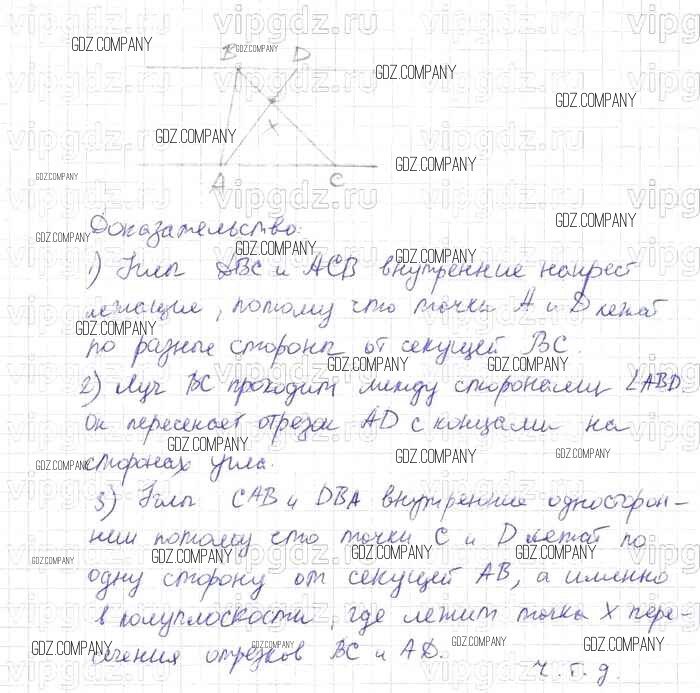 B D
X
A C
Доказательство:
1) Углы DBC и ACB внутренние накрест
лежащие, потому что точки A и D лежат
по разные стороны от секущей BC.
2) Луч BC проходит между сторонами ∠ABD.
Он пересекает отрезок AD с концами на
сторонах угла.
3) Углы CAB и DBA внутренние односторон-
ним потому что точки C и D лежат по
одну сторону от секущей AB, а именно
в полуплоскости, где лежит точка X пере-
сечения отрезков BC и AD.
ч.т.д.
GDZ.COMPANY
vipgdz.ru